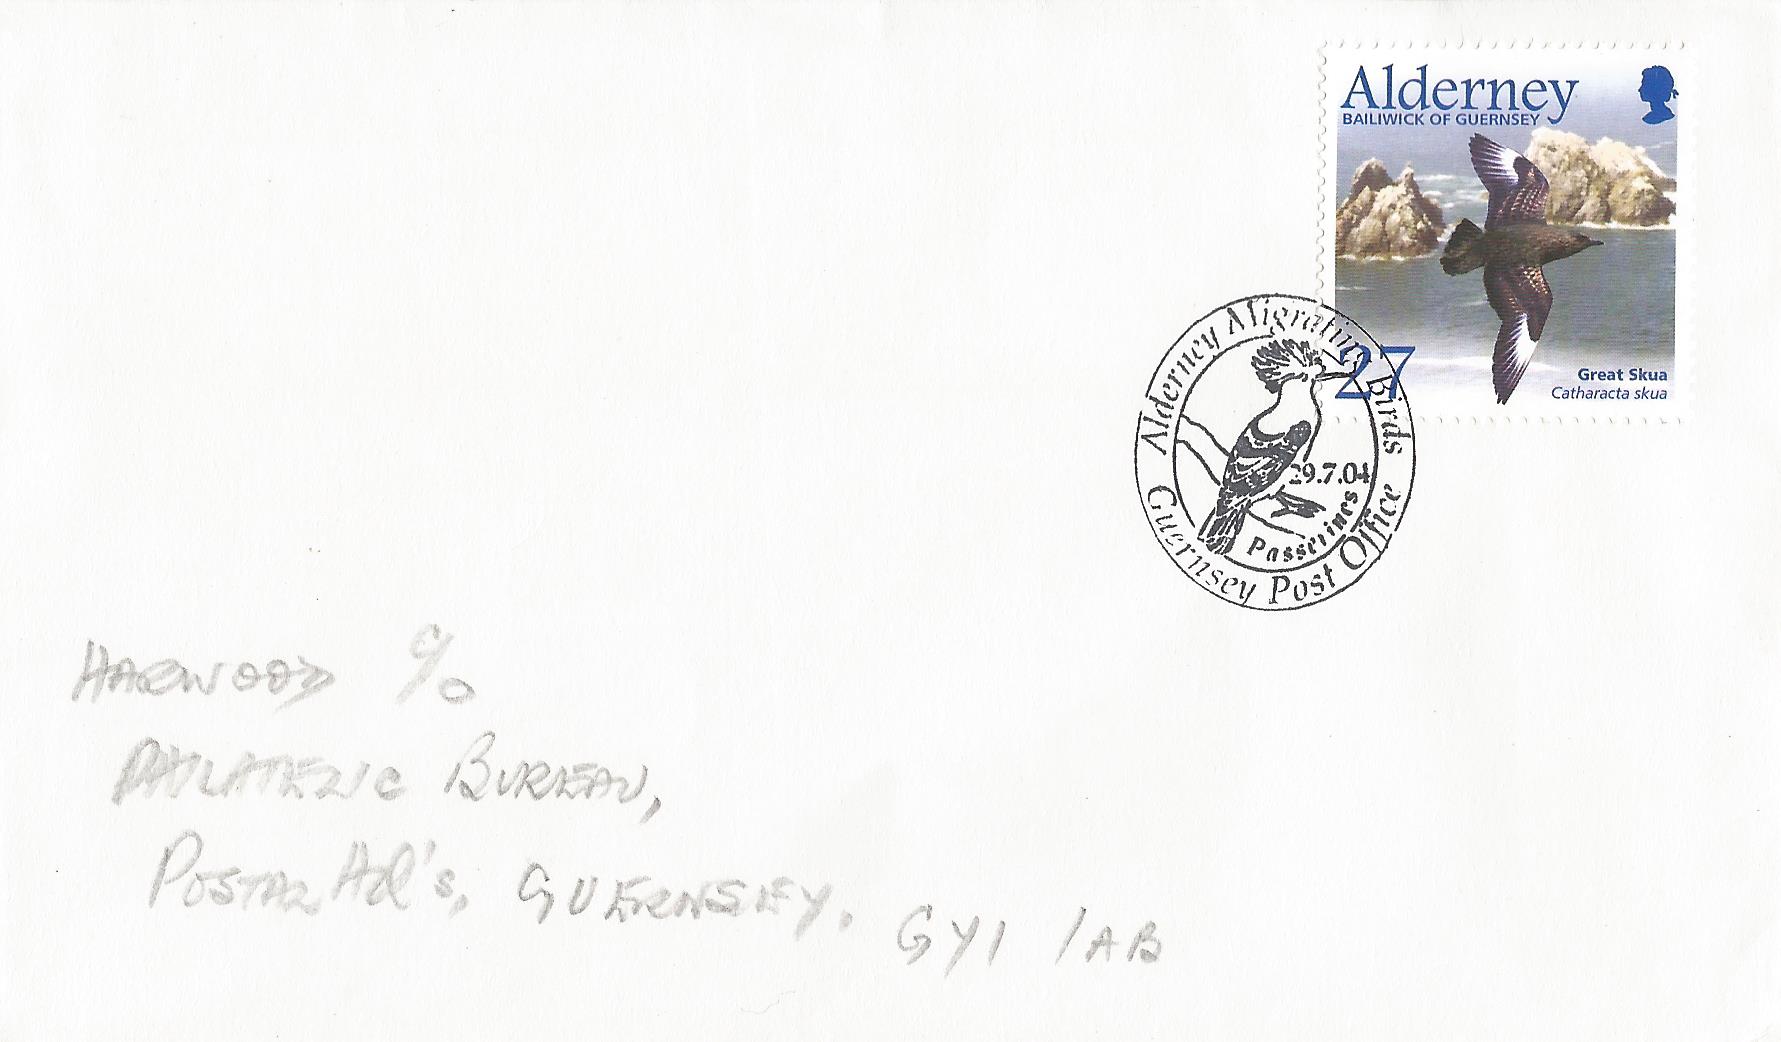 Alderney
BAILIWICK OF GUERNSEY
27
Great Skua
Catharacta skua
Alderney Migrating Birds
29.7.04
Passerines
Guernsey Post Office
HARWOOD c/o
PHILATELIC BUREAU,
POSTAL HQ's, GUERNSEY, GY1 1AB